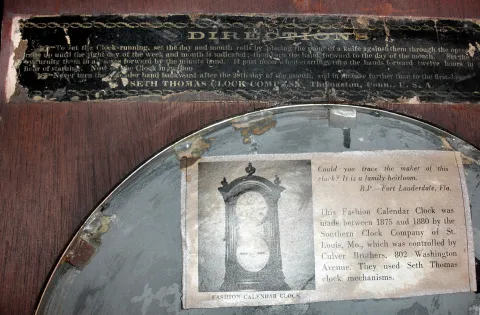 DIRECTIONS
To set the Clock running, set the day and month rolls by placing the point of a knife against them through the
until the right day of the week and month is indicated; then turn the hand forward to the day of the month.
turning them forward by the minute hand. If put down when starting the hands forward twelve hours
hour of starting. Now the Clock in motion.
Never turn the hand backward after the 28th day of the month, and in no case further than to the first.
SETH THOMAS CLOCK COMPANY, Thomaston, Conn., U. S. A.
Could you trace the maker of this
clock? It is a family heirloom.
B.P.—Fort Lauderdale, Fla.
This Fashion Calendar Clock was
made between 1875 and 1880 by the
Southern Clock Company of St.
Louis, Mo., which was controlled by
Culver Brothers, 802 Washington
Avenue. They used Seth Thomas
clock mechanisms.
FASHION CALENDAR CLOCK